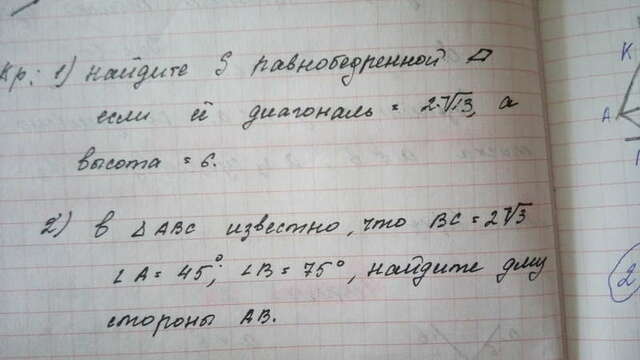 Кр: 1) Найдите S равнобедренной ⏢
если её диагональ = 2·√13, а
высота = 6.
2) В △ABC известно, что BC = 2√3
∠A = 45°; ∠B = 75°, найдите длину
стороны AB.
K
A
2